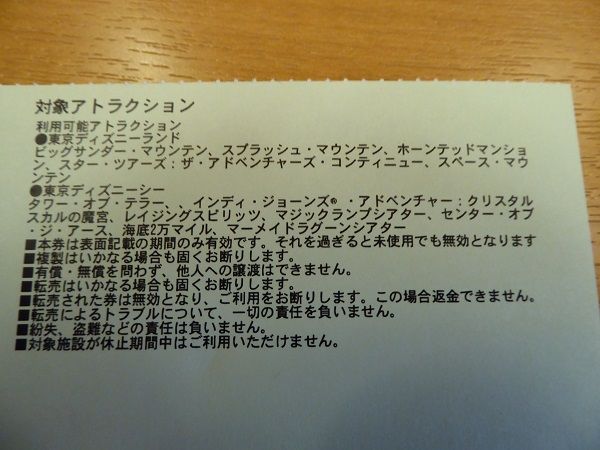 対象アトラクション
利用可能アトラクション
●東京ディズニーランド
ビッグサンダー・マウンテン、スプラッシュ・マウンテン、ホーンテッドマンショ
ン、スター・ツアーズ：ザ・アドベンチャーズ・コンティニュー、スペース・マウ
ンテン
●東京ディズニーシー
タワー・オブ・テラー、、インディ・ジョーンズ®・アドベンチャー：クリスタル
スカルの魔宮、レイジングスピリッツ、マジックランプシアター、センター・オブ
・ジ・アース、海底2万マイル、マーメイドラグーンシアター
■本券は表面記載の期間のみ有効です。それを過ぎると未使用でも無効となります
■複製はいかなる場合も固くお断りします。
■有償・無償を問わず、他人への譲渡はできません。
■転売はいかなる場合も固くお断りします。
■転売された券は無効となり、ご利用をお断りします。この場合返金できません。
■転売によるトラブルについて、一切の責任を負いません。
■紛失、盗難などの責任は負いません。
■対象施設が休止期間中はご利用いただけません。